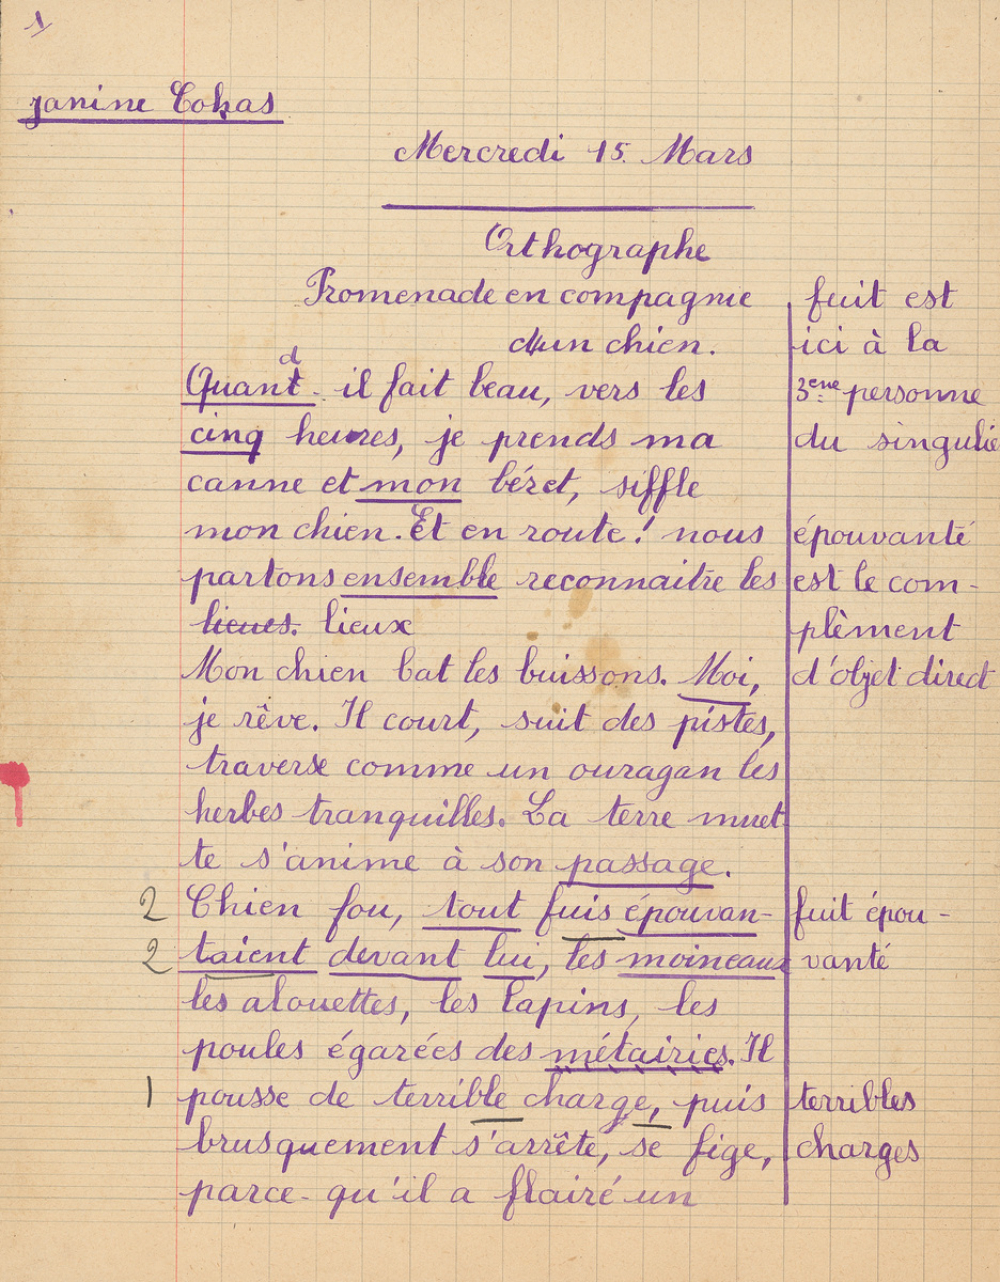 1
Janine Cohas
Mercredi 15. Mars
Orthographe
Promenade en compagnie
d'un chien.
d
Quant il fait beau, vers les
cinq heures, je prends ma
canne et mon béret, siffle
mon chien. Et en route! nous
partons ensemble reconnaitre les
lieues. lieux
Mon chien bat les buissons. Moi,
je rêve. Il court, suit des pistes,
traverse comme un ouragan les
herbes tranquilles. La terre muet
te s'anime à son passage.
2 Chien fou, tout fuis épouvan-
2 taient devant lui, les moineaux
les alouettes, les lapins, les
poules égarées des métairies. Il
1 pousse de terrible charge, puis
brusquement s'arrête, se fige,
parce-qu'il a flairé un
fuit est
ici à la
3eme personne
du singulie
épouvanté
est le com-
plèment
d'objet direct
fuit épou-
vanté
terribles
charges